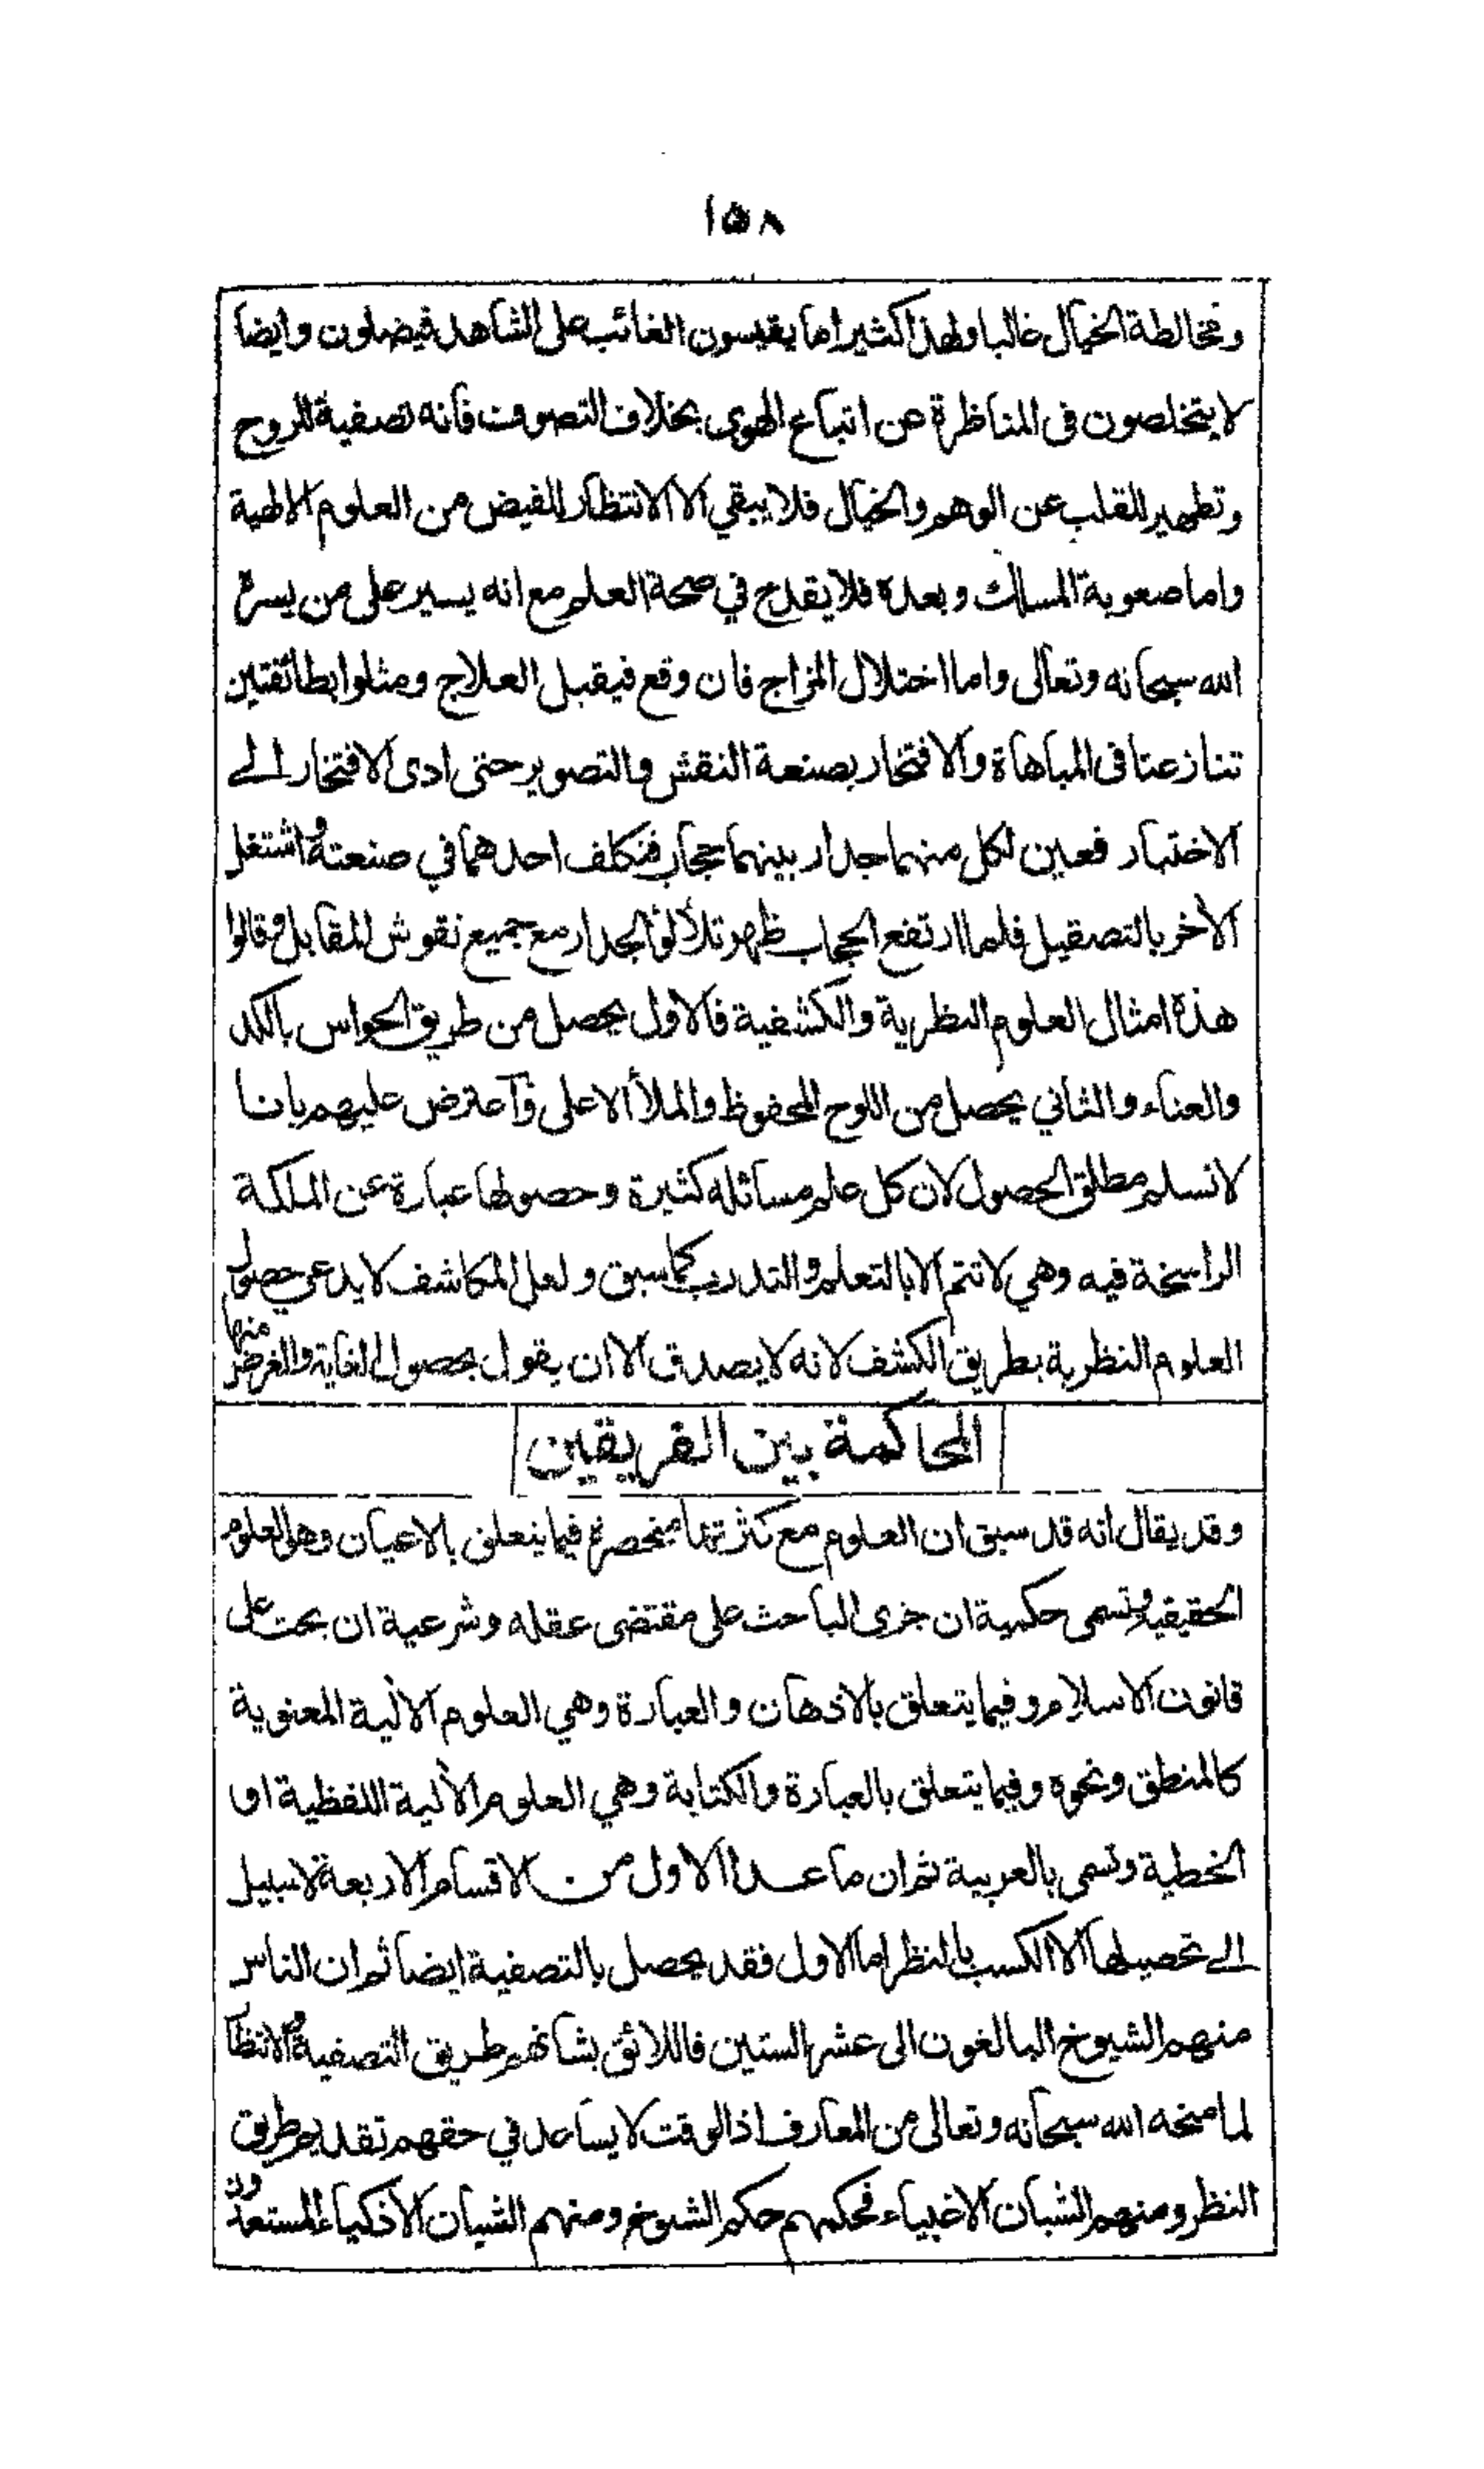 ١٥٨
ومخالطة الخيال غالبا ولهذا كثيرا ما يقيسون الغائب على الشاهد فيضلون وايضا
لا يتخلصون فى المناظرة عن اتباع الهوى بخلاف التصوف فانه تصفية للروح
وتطهير للقلب عن الوهم والخيال فلا يبقي الا الانتظار للفيض من العلوم الالهية
واما صعوبة المسلك وبعده فلا يقدح في صحة العلم مع انه يسير على من يسره
الله سبحانه وتعالى واما اختلال المزاج فان وقع فيقبل العلاج ومثلوا بطائفتين
تنازعتا فى المباهاة والافتخار بصنعة النقش والتصوير حتى ادى الافتخار الے
الاختبار فعين لكل منهما جدار بينهما حجاب فتكلف احدهما في صنعته واشتغل
الأخر بالتصقيل فلما ارتفع الحجاب ظهر تلألؤ الجدار مع جميع نقوش المقابل وقالوا
هذه امثال العلوم النظرية والكشفية فالاول يحصل من طريق الحواس بالكد
والعناء والثاني يحصل من اللوح المحفوظ والملأ الاعلى وآعترض عليهم بانا
لا نسلم مطلق الحصول لان كل علم مسائله كثيرة وحصولها عبارة عن الملكة
الراسخة فيه وهي لا تتم الا بالتعلم والتدرب كما سبق ولعل المكاشف لا يدعي حصول
العلوم النظرية بطريق الكشف لانه لا يصدق الا ان يقول بحصول الغاية والغرض منها
المحاكمة بين الفريقين
وقد يقال انه قد سبق ان العلوم مع كثرتها منحصرة فيما يتعلق بالاعيان وهى العلوم
الحقيقية وتسمى حكمية ان جرى الباحث على مقتضى عقله وشرعية ان بحث على
قانون الاسلام وفيما يتعلق بالاذهان والعبارة وهي العلوم الالية المعنوية
كالمنطق ونحوه وفيما يتعلق بالعبارة والكتابة وهي العلوم الألية اللفظية او
الخطية وتسمى بالعربية ثم ان ما عدا الاول من الاقسام الاربعة لا سبيل
الے تحصيلها الا الكسب بالنظر اما الاول فقد يحصل بالتصفية ايضا ثم ان الناس
منهم الشيوخ البالغون الى عشر الستين فاللائق بشانهم طريق التصفية والانتظار
لما منحه الله سبحانه وتعالى من المعارف اذ الوقت لا يساعد في حقهم تقديم طريق
النظر ومنهم الشبان الاغبياء فحكمهم حكم الشيوخ ومنهم الشبان الأذكياء المستعدون